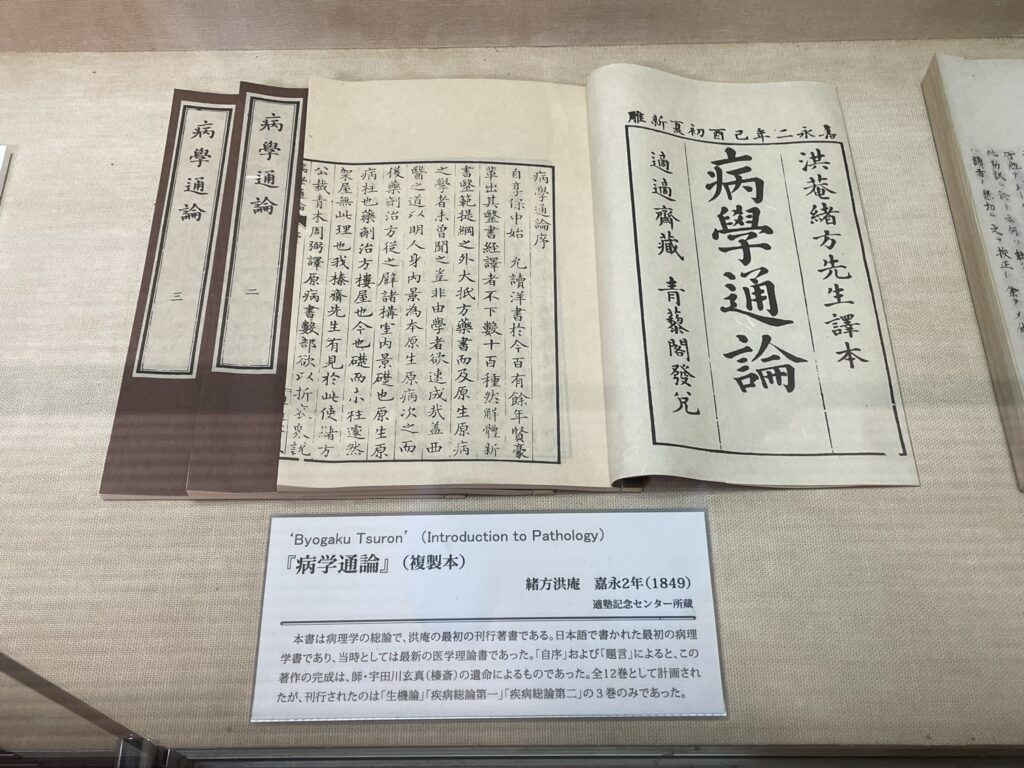 嘉永二年己酉初夏新雕
洪菴緒方先生譯本
病學通論
適適齋藏　青藜閣發兌
病學通論序
自享保中始　允讀洋書於今百有餘年賢豪
輩出其毉書經譯者不下數十百種然解體新
書毉範提綱之外大抵方藥書而及原生原病
之學者未曾聞之豈非由學者欲速成哉蓋西
醫之道以明人身內景為本原生原病次之而
後藥劑治方從之辟諸構室內景礎也原生原
病柱也藥劑治方樓屋也今也礎而小柱遽然
架屋無此理也我榛齋先生有見於此使緒方
公裁青木周弼譯原病書數部欲以折衷眾說
病學通論
病學通論
二
病學通論
三
'Byogaku Tsuron' (Introduction to Pathology)
『病学通論』（複製本）
緒方洪庵　嘉永2年(1849)
適塾記念センター所蔵
本書は病理学の総論で、洪庵の最初の刊行著書である。日本語で書かれた最初の病理
学書であり、当時としては最新の医学理論書であった。「自序」および「題言」によると、この
著作の完成は、師・宇田川玄真（榛斎）の遺命によるものであった。全12巻として計画され
たが、刊行されたのは「生機論」「疾病総論第一」「疾病総論第二」の３巻のみであった。